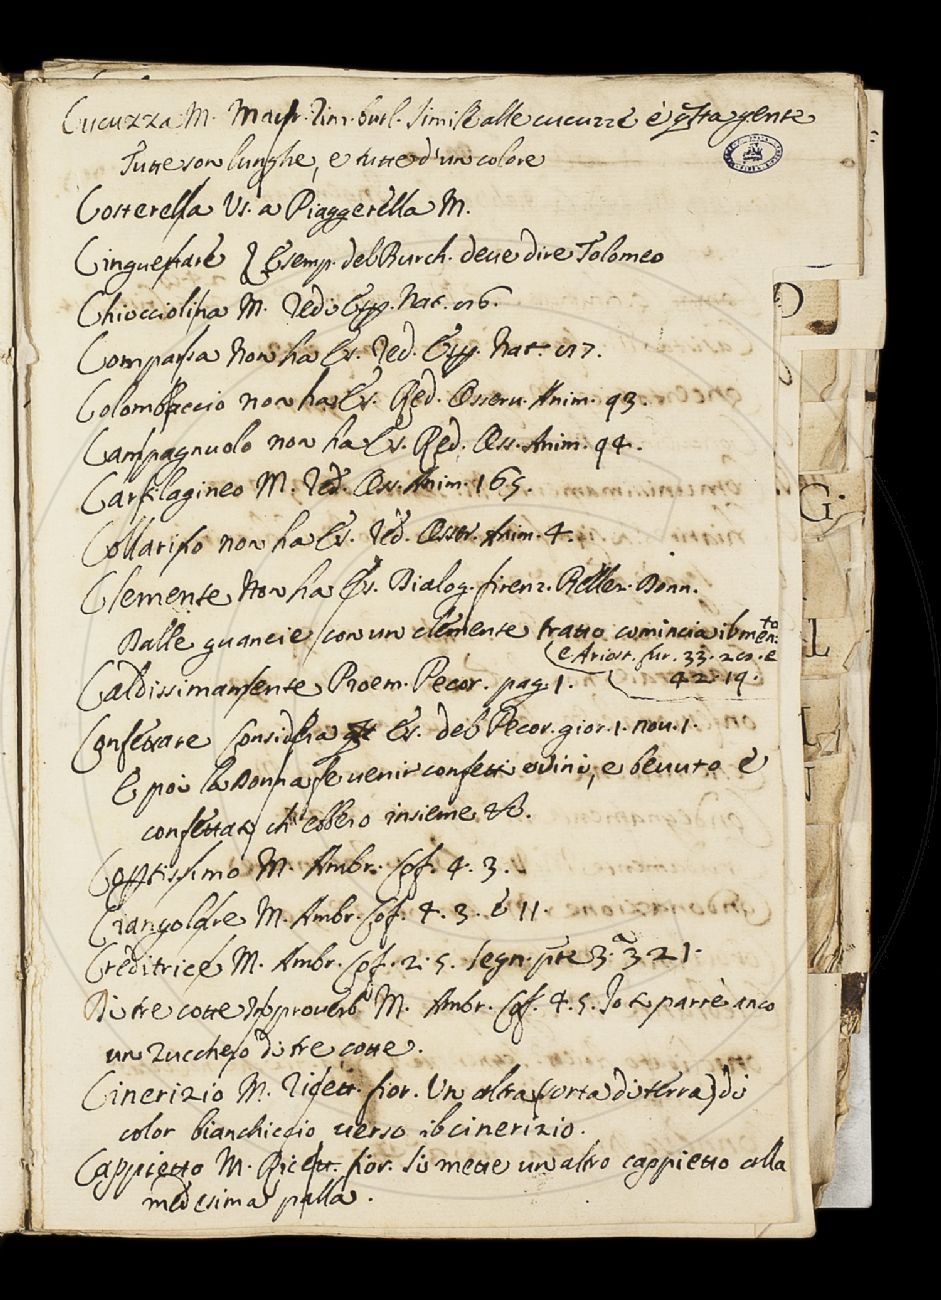 Cucuzza M. Maur. Rim. burl. Simile alle cucuzze è q̃sta gente
Tutte son lunghe, e tutte d'un colore
Costerella Us. a Piaggerella M.
Cinguettare L'Esemp. del Burch. deve dire Tolomeo
Chiocciolina M. Redi Esp. Nat.
Comparsa Non ha Es. Red. Esp. Nat.
Colombaccio non ha Es. Red. Osserv. Anim. 93.
Campagnuolo non ha Es. Red. Oss. Anim. 94.
Cartilagineo M. Red. Oss. Anim. 165.
Collarino non ha Es. Red. Osser. Anim. 4.
Clemente Non ha Es. Dialog. firenz. Bellez. Donn.
Dalle guancie con un clemente tratto comincia il men.to
e Ariost. fur. 33. e
42. 19.
Caldissimamente Proem. Pecor. pag. 1.
Confettare Considera Es. del Pecor. gior. 1. nov. 1.
E poi la Donna fe venir confetti e vini, e bevuto e
confettato ch'ebbero insieme &c.
M. Ambr. Cof. 4. 3.
Ciangolare M. Ambr. Cof. 4. 3. e 11.
Creditrice M. Ambr. Cof. 2. 5. segn. p̃te 3.a 321.
Di tre cotte In proverb. M. Ambr. Cof. 4. 5. Io ti parrè anco
un Zucchero di tre cotte.
Cinerizio M. Ricett. fior. Un altra (sorta di terra) di
color bianchiccio verso il cinerizio.
Cappietto M. Ricett. fior. Si mette un altro cappietto alla
medesima palla.
G
L